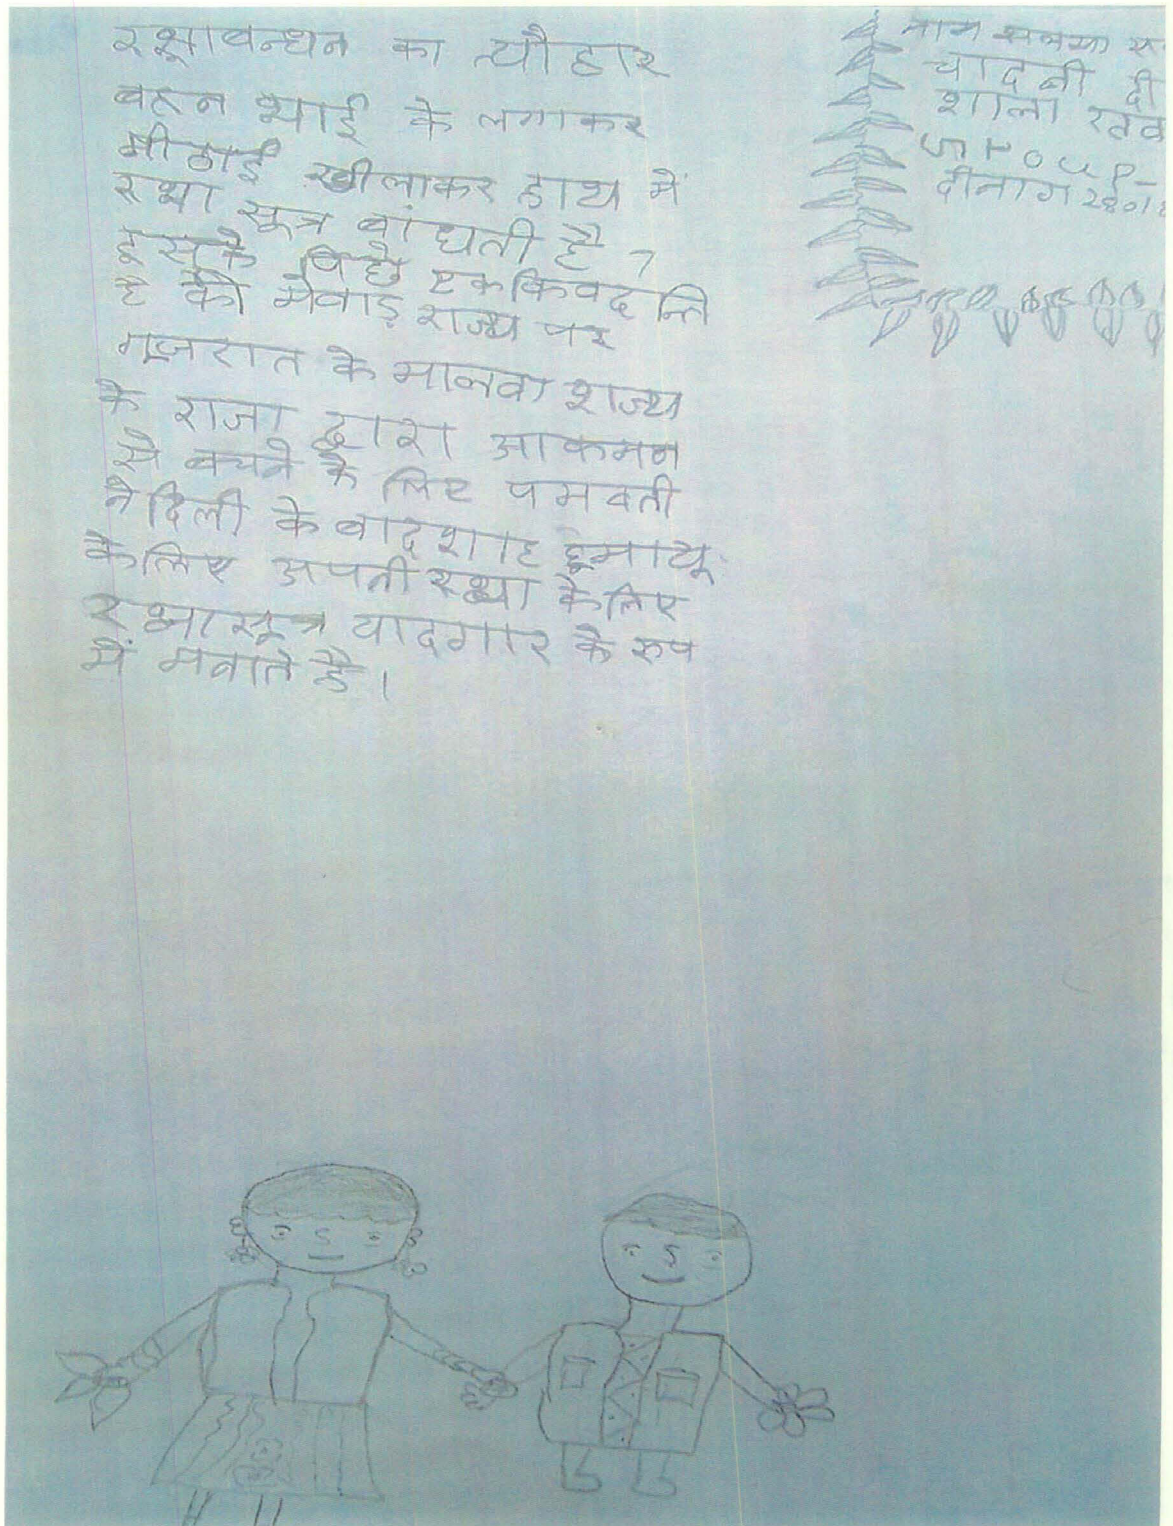 रक्षाबन्धन का त्यौहार
बहन भाई के लगाकर
मीठाई खीलाकर हाथ में
रक्षा सूत्र बांधती है,
इसके पिछे एक किवदन्ति
है की मेवाड़ राज्य पर
गुजरात के मालवा राज्य
के राजा द्वारा आकमन
से बचने के लिए पमवती
ने दिली के बादशाह हुमायू
के लिए अपनी रक्षा के लिए
रक्षासूत्र यादगार के रुप
में मनाते है।
नाम
चादनी दी
शाला
Group-
दीनाग